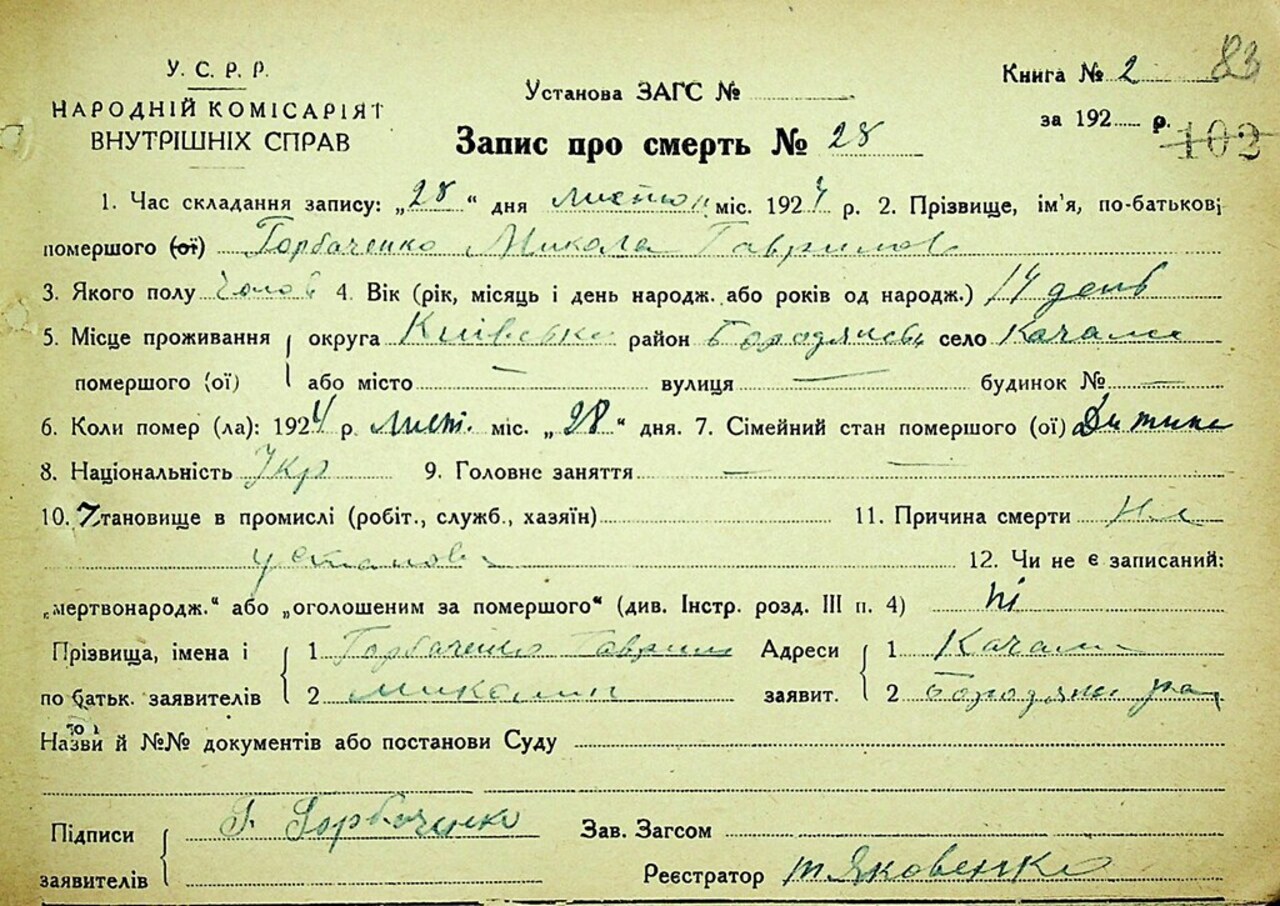 У. С. Р. Р.
НАРОДНІЙ КОМІСАРІЯТ
ВНУТРІШНІХ СПРАВ
Установа ЗАГС №
Книга № 2 83
за 192 р. 102
Запис про смерть № 28
1. Час складання запису: „28“ дня листоп міс. 1924 р. 2. Прізвище, ім'я, по-батькові
помершого (ої) Горбаченко Микола Гаврилов
3. Якого полу Чолов 4. Вік (рік, місяць і день народж. або років од народж.) 14 день
5. Місце проживання округа Київська район Бородянськ село Качали
помершого (ої) або місто — вулиця — будинок № —
6. Коли помер (ла): 1924 р. лист. міс. „28“ дня. 7. Сімейний стан помершого (ої) Дитина
8. Національність Укр 9. Головне заняття — —
10. Становище в промислі (робіт., служб., хазяїн) 11. Причина смерти Не
установ
12. Чи не є записаний:
„мертвонародж.“ або „оголошеним за помершого“ (див. Інстр. розд. III п. 4) Ні
Прізвища, імена і 1 Горбаченко Гаврил Адреси 1 Качали
по батьк. заявителів 2 заявит. 2 Бородянк ра
Назви й №№ документів або постанови Суду
Підписи Г. Горбаченко Зав. Загсом
заявителів Реєстратор Яковенко